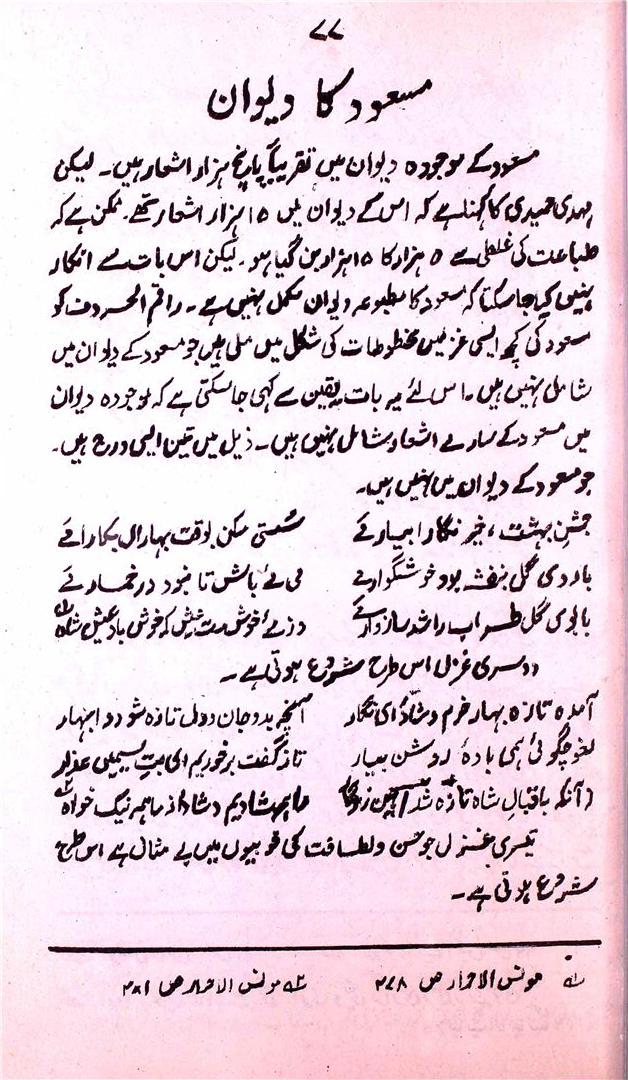 ۷۷
مسعود کا دیوان
مسعود کے موجودہ دیوان میں تقریباً پانچ ہزار اشعار ہیں۔ لیکن
مہدی حمیدی کا کہنا ہے کہ اس کے دیوان میں ۱۵ ہزار اشعار تھے۔ ممکن ہے کہ
طباعت کی غلطی سے ۵ ہزار کا ۱۵ ہزار بن گیا ہو۔ لیکن اس بات سے انکار
نہیں کیا جا سکتا کہ مسعود کا مطبوعہ دیوان مکمل نہیں ہے۔ راقم الحروف کو
مسعود کی کچھ ایسی غزلیں مخطوطات کی شکل میں ملی ہیں جو مسعود کے دیوان میں
شامل نہیں ہیں۔ اس لئے یہ بات یقین سے کہی جا سکتی ہے کہ موجودہ دیوان
میں مسعود کے سارے اشعار شامل نہیں ہیں۔ ذیل میں تین ایسی درج ہیں۔
جو مسعود کے دیوان میں نہیں ہیں۔
جشن بہشت، خیز نگارا بیار نے سستی مکن بوقت بہاراں بکار انے
با وردی گل بنفشہ بود خوشگوار نے می نے باش تا نبود در خمار نے
با بوی گل طرب را شد سازوار نے در نے خوش ست کہ خوش باد عیش شاہ لہ
دوسری غزل اس طرح شروع ہوتی ہے۔
آمدہ تازہ بہار خرم و شاد ای نگار آنچہ بدو جان و دل تازہ شود و ابہار
لغو چگوئی ہمی بادۂ روشن بیار تاز گفت برخوریم ای بت سیمیں عذار
زآنکہ باقبال شاہ تازہ شد ایں چنین ما بہم شادیم و شاد از ما ہمہ نیک خواہ
تیسری غزل جو حسن و لطافت کی خوبیوں میں بے مثال ہے اس طرح
شروع ہوتی ہے۔
لہ مونس الاحرار ص ۴۷۸ ۲ہ مونس الاحرار ص ۴۸۱